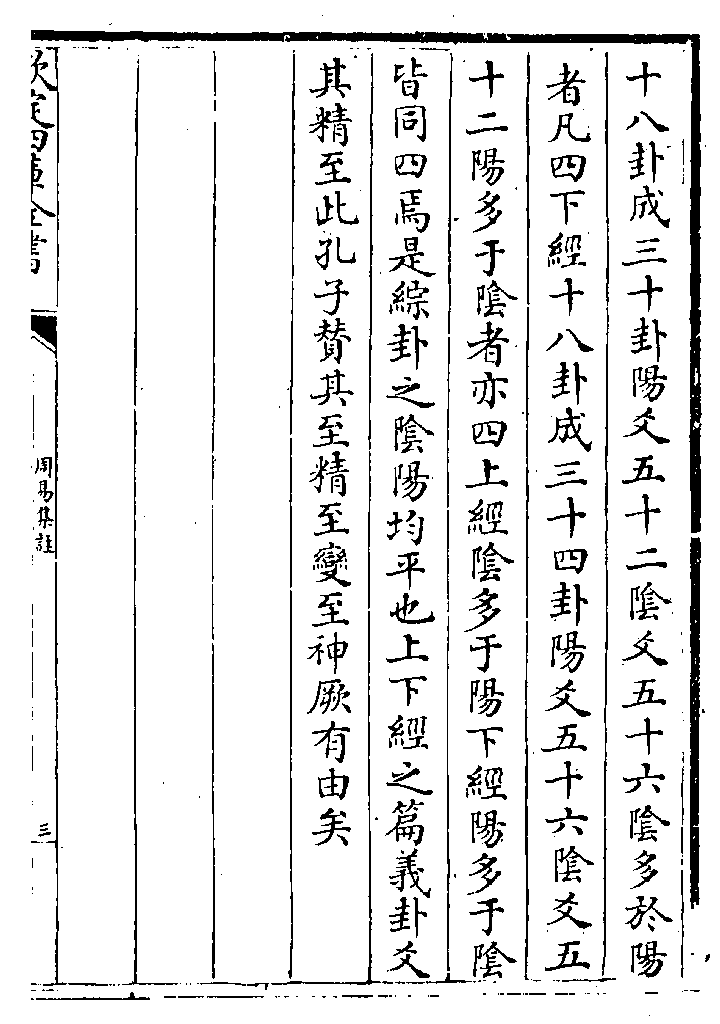 十八卦成三十卦陽爻五十二陰爻五十六陰多於陽
者凡四下經十八卦成三十四卦陽爻五十六陰爻五
十二陽多于陰者亦四上經陰多于陽下經陽多于陰
皆同四焉是綜卦之陰陽均平也上下經之篇義卦爻
其精至此孔子賛其至精至變至神厥有由矣
欽定四庫全書
周易集註
三